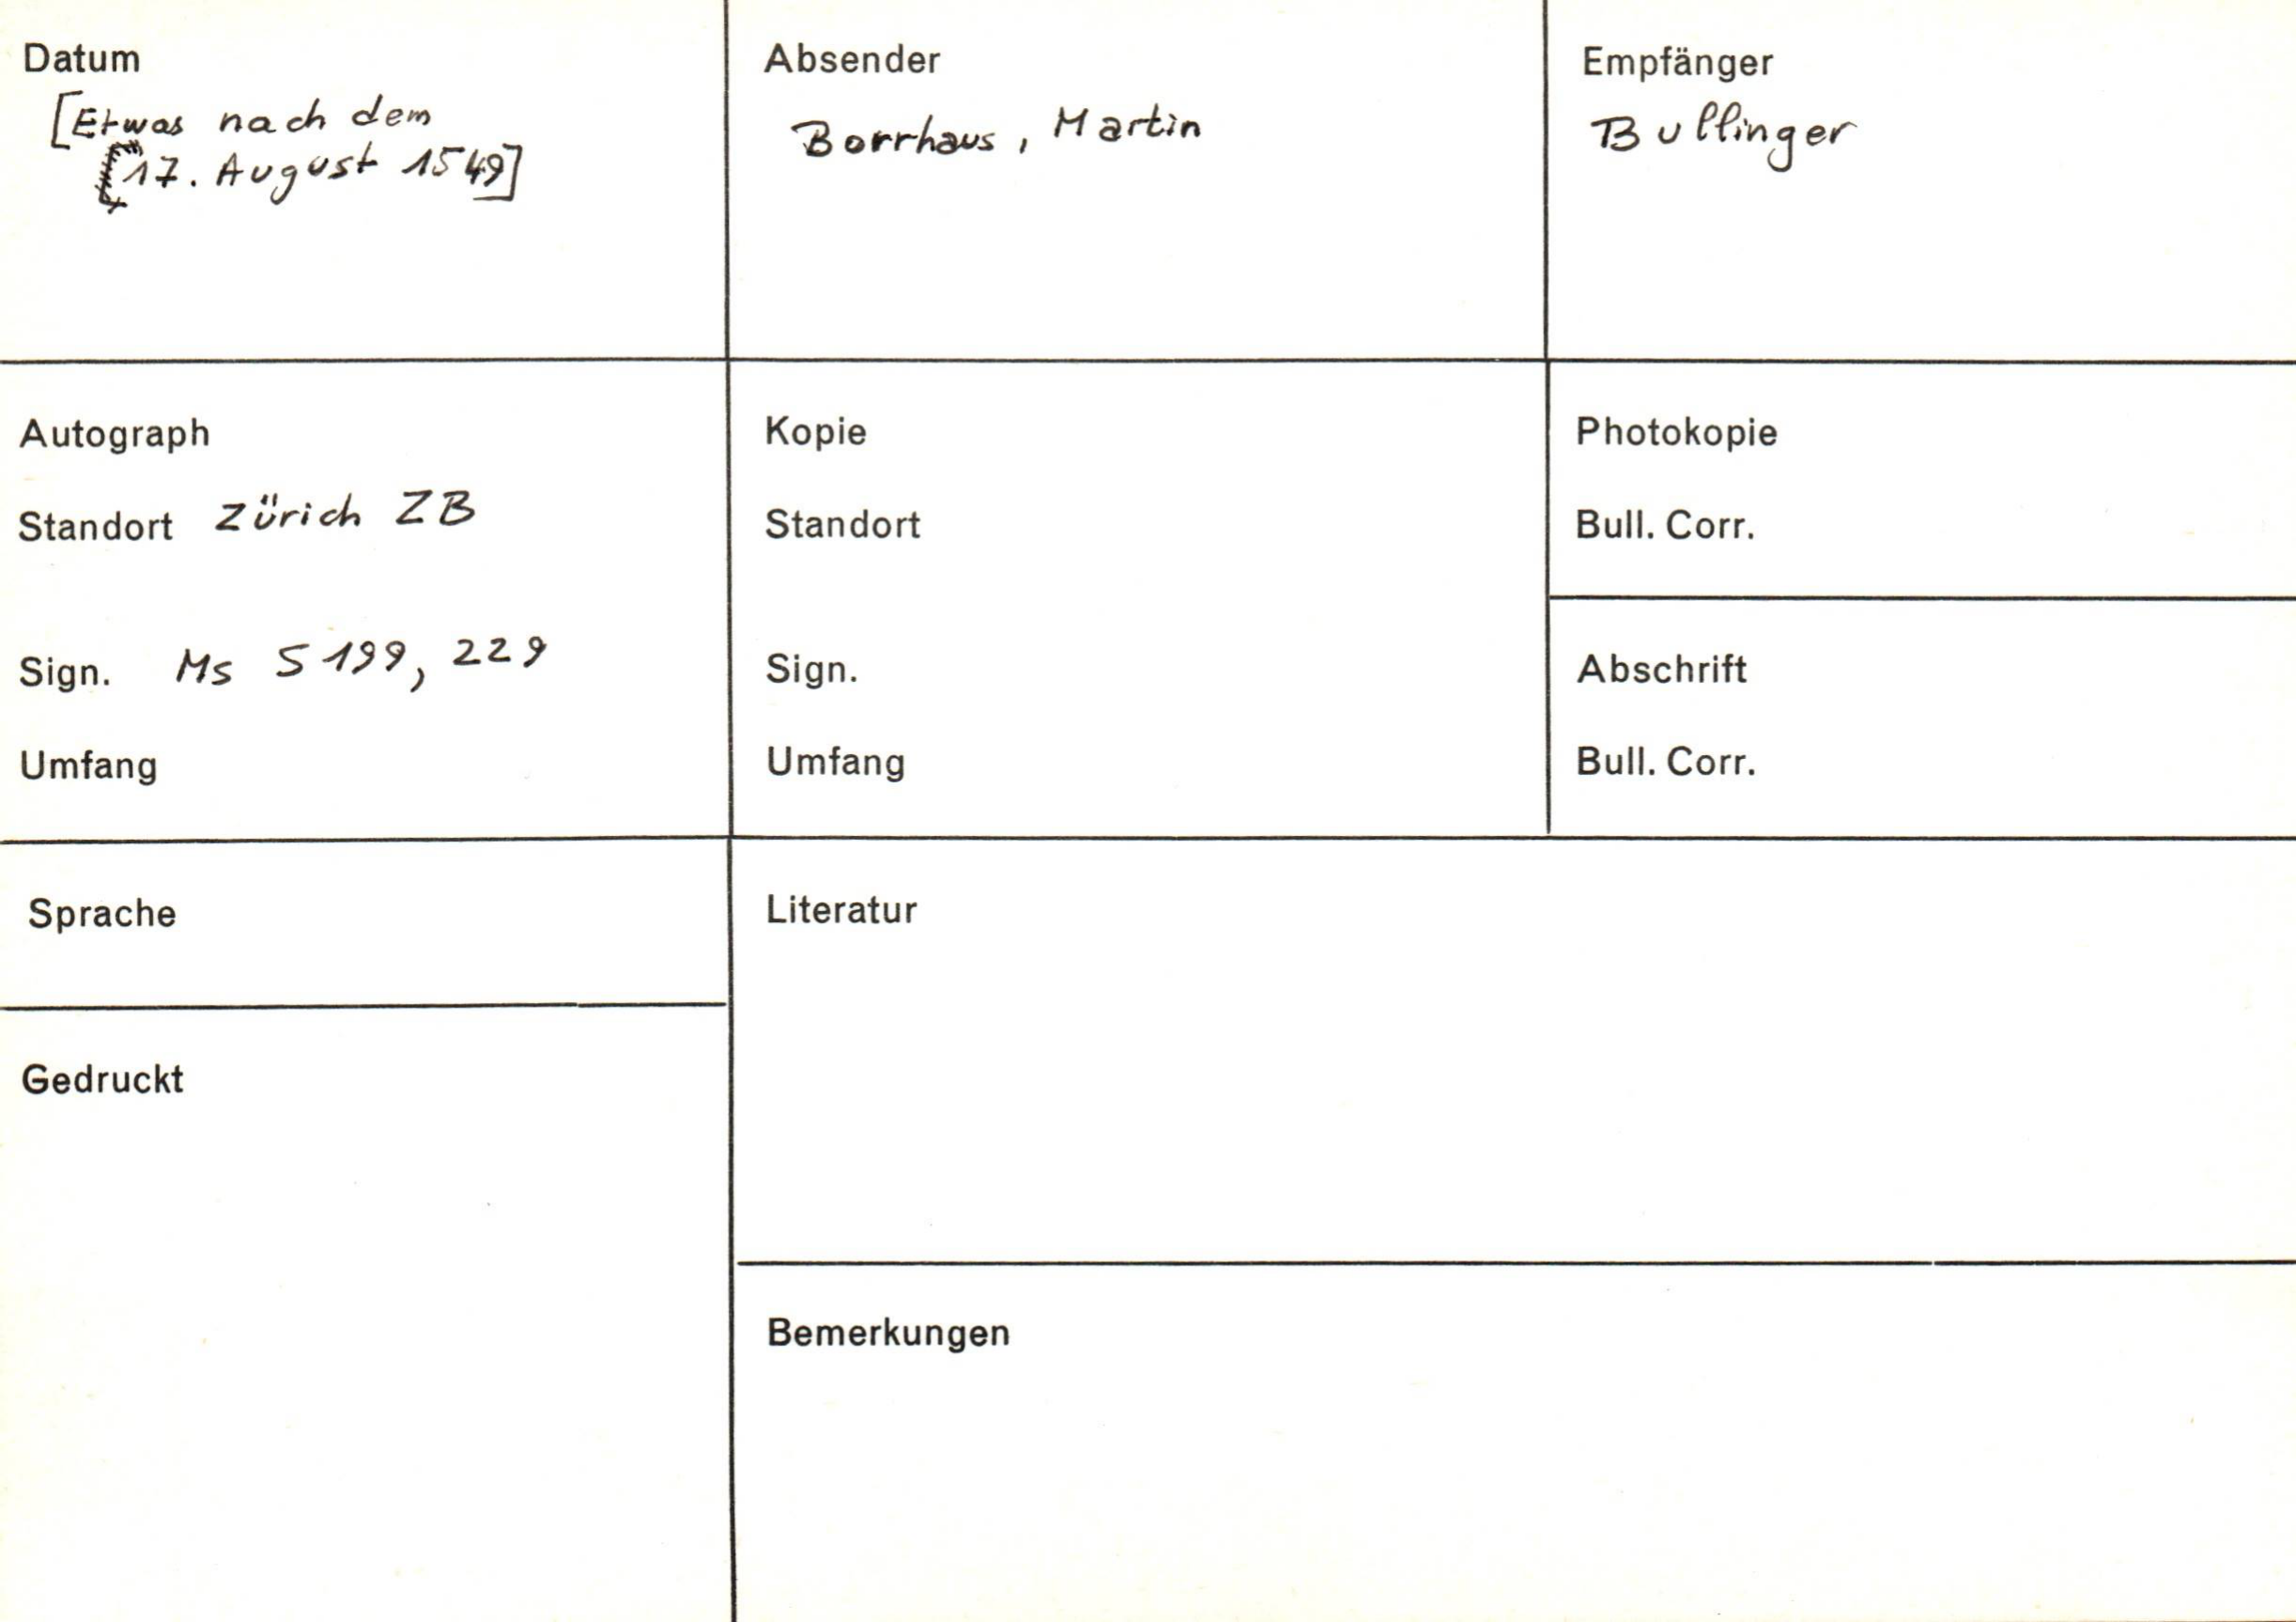 Datum
[Etwas nach dem
17. August 1549]
Absender
Borrhaus, Martin
Empfänger
Bullinger
Autograph
Standort Zürich ZB
Sign. Ms S 199, 229
Umfang
Kopie
Standort
Sign.
Umfang
Photokopie
Bull. Corr.
Abschrift
Bull. Corr.
Sprache
Gedruckt
Literatur
Bemerkungen